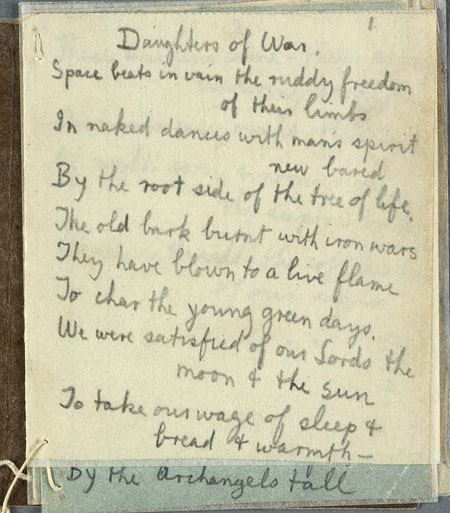 1
Daughters of War.
Space beats in vain the ruddy freedom
of their limbs
In naked dances with man's spirit
new bared
By the root side of the tree of life.
The old bark burnt with iron wars
They have blown to a live flame
To char the young green days.
We were satisfied of our Lords the
moon & the sun
To take our wage of sleep &
bread & warmth—
By the Archangels tall